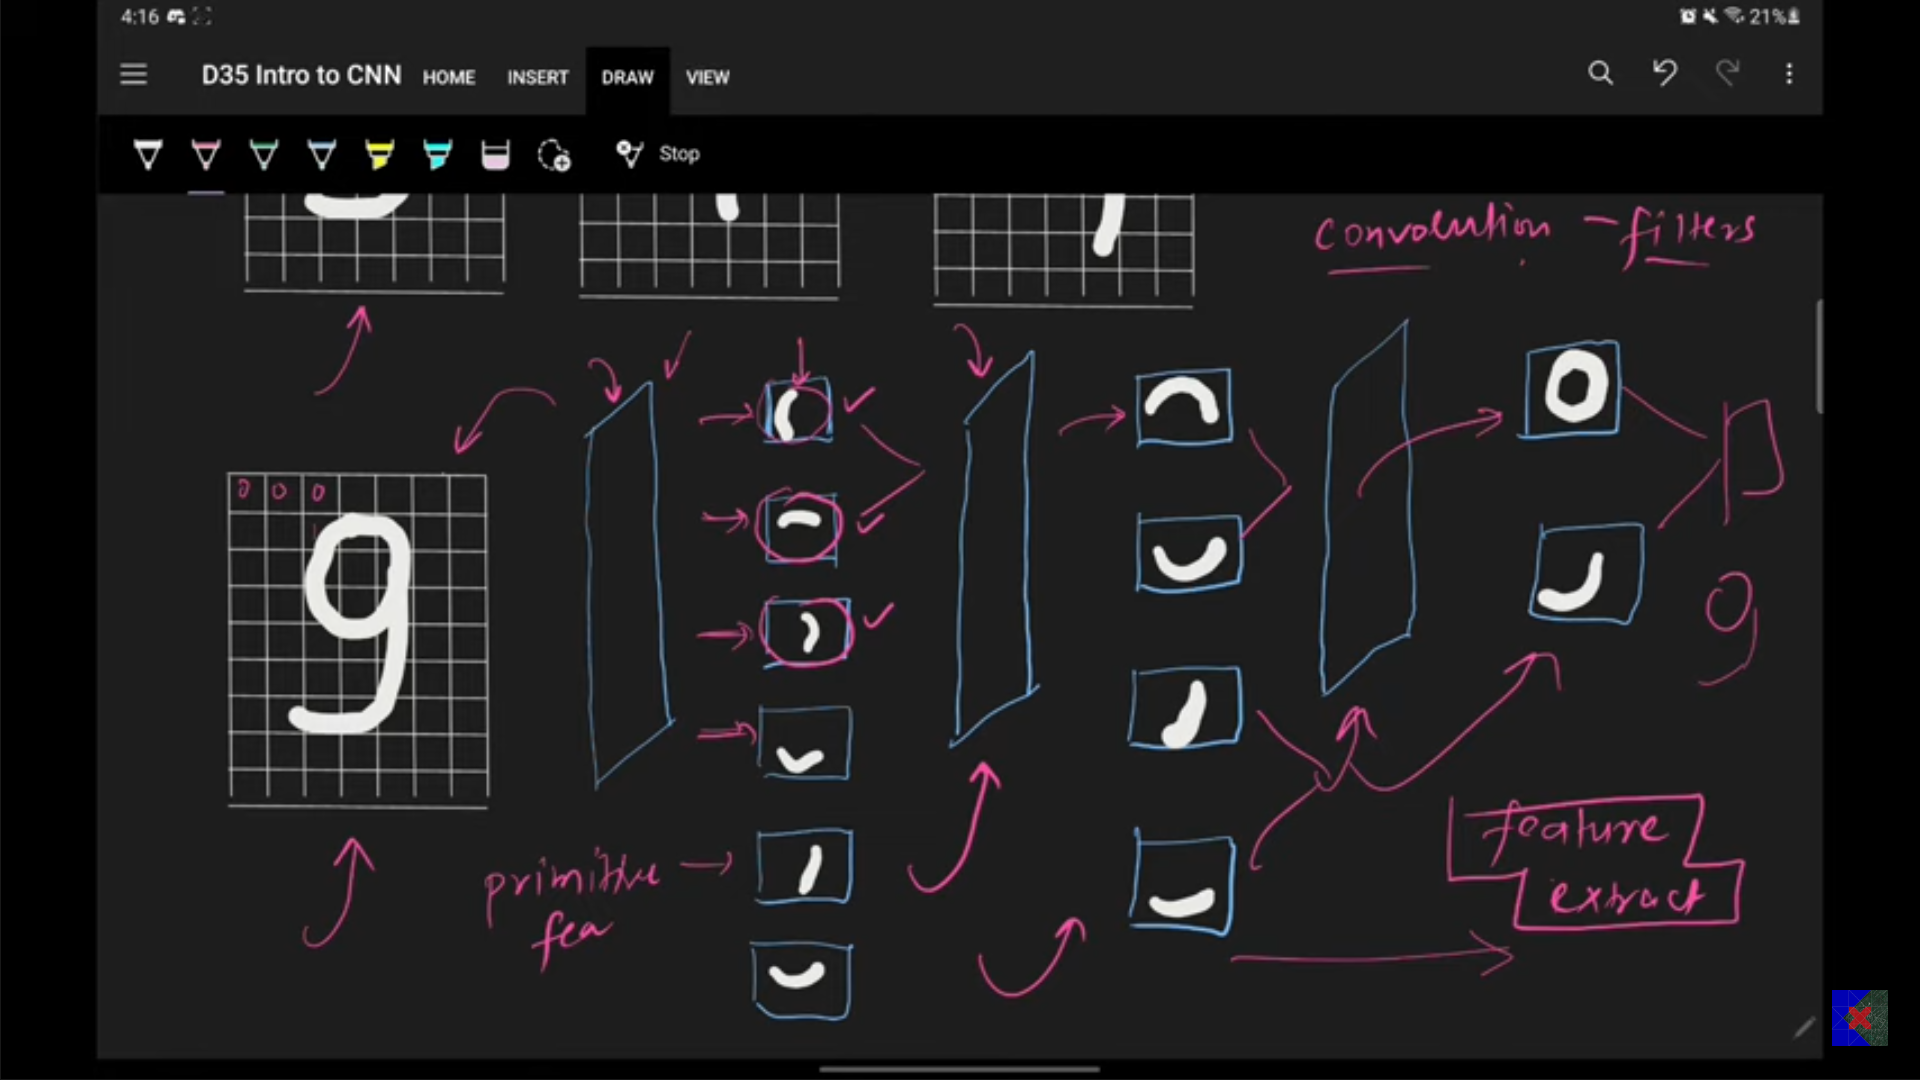 4:16
21%
D35 Intro to CNN HOME INSERT DRAW VIEW
Stop
convolution - filters
0 0 0
9
9
primitive
fea
feature
extract